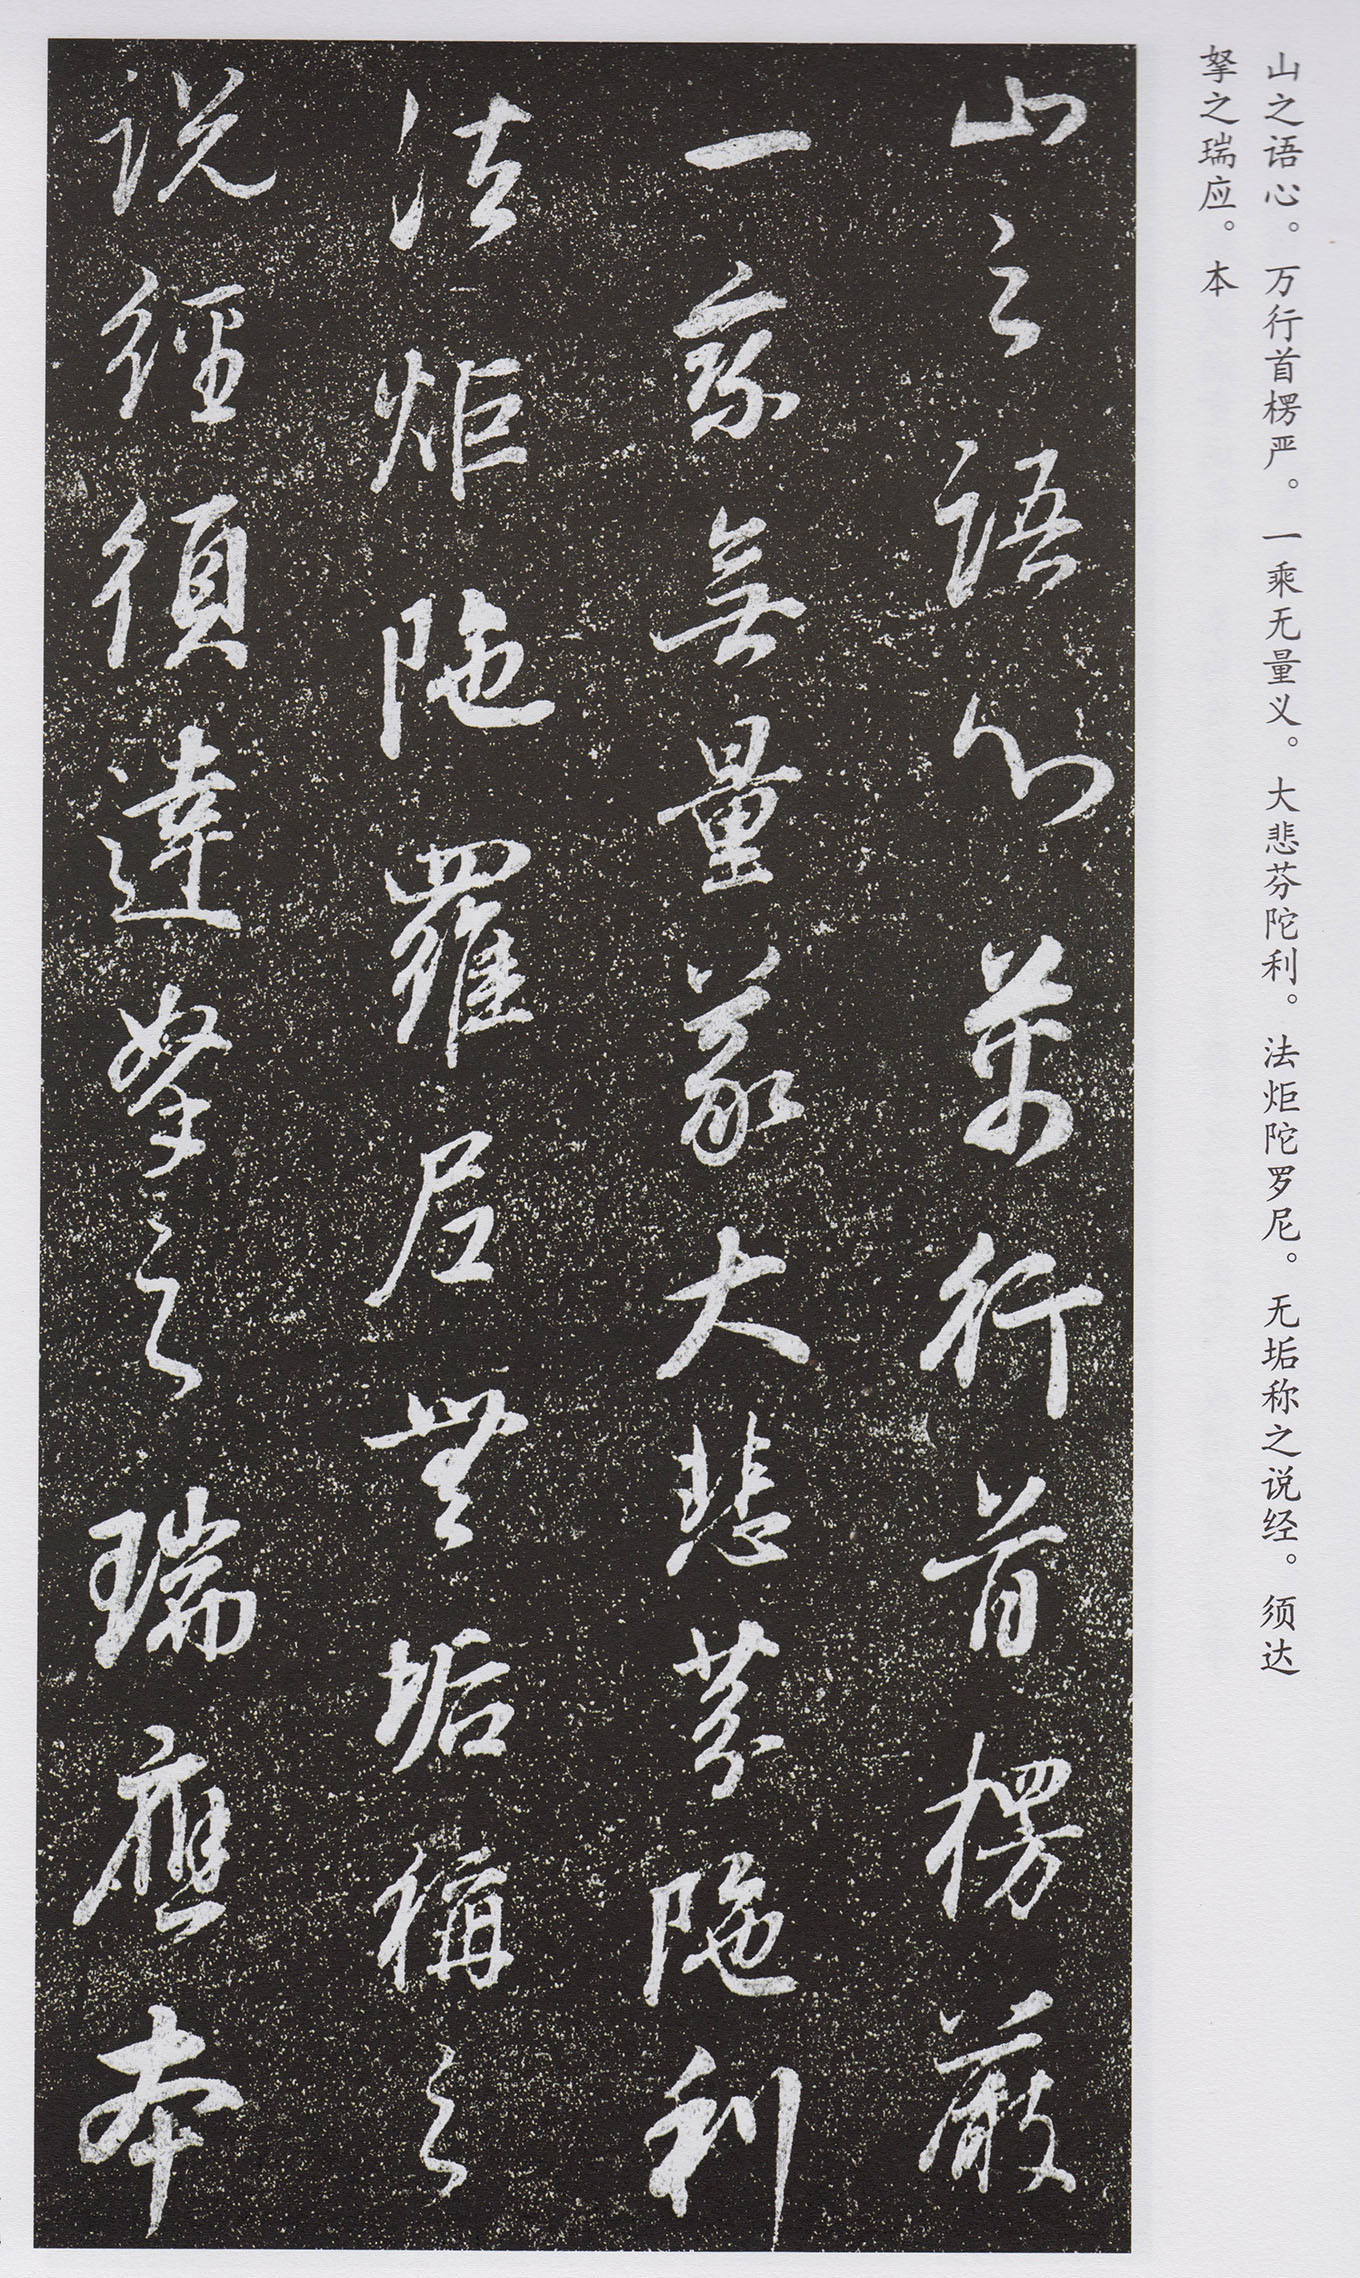 山之语心。万行首楞严。一乘无量义。大悲芬陀利。法炬陀罗尼。无垢称之说经。须达
拏之瑞应。本
山之語心萬行首楞嚴
一乘無量義大悲芬陁利
法炬陁羅尼無垢稱之
説經須達拏之瑞應本